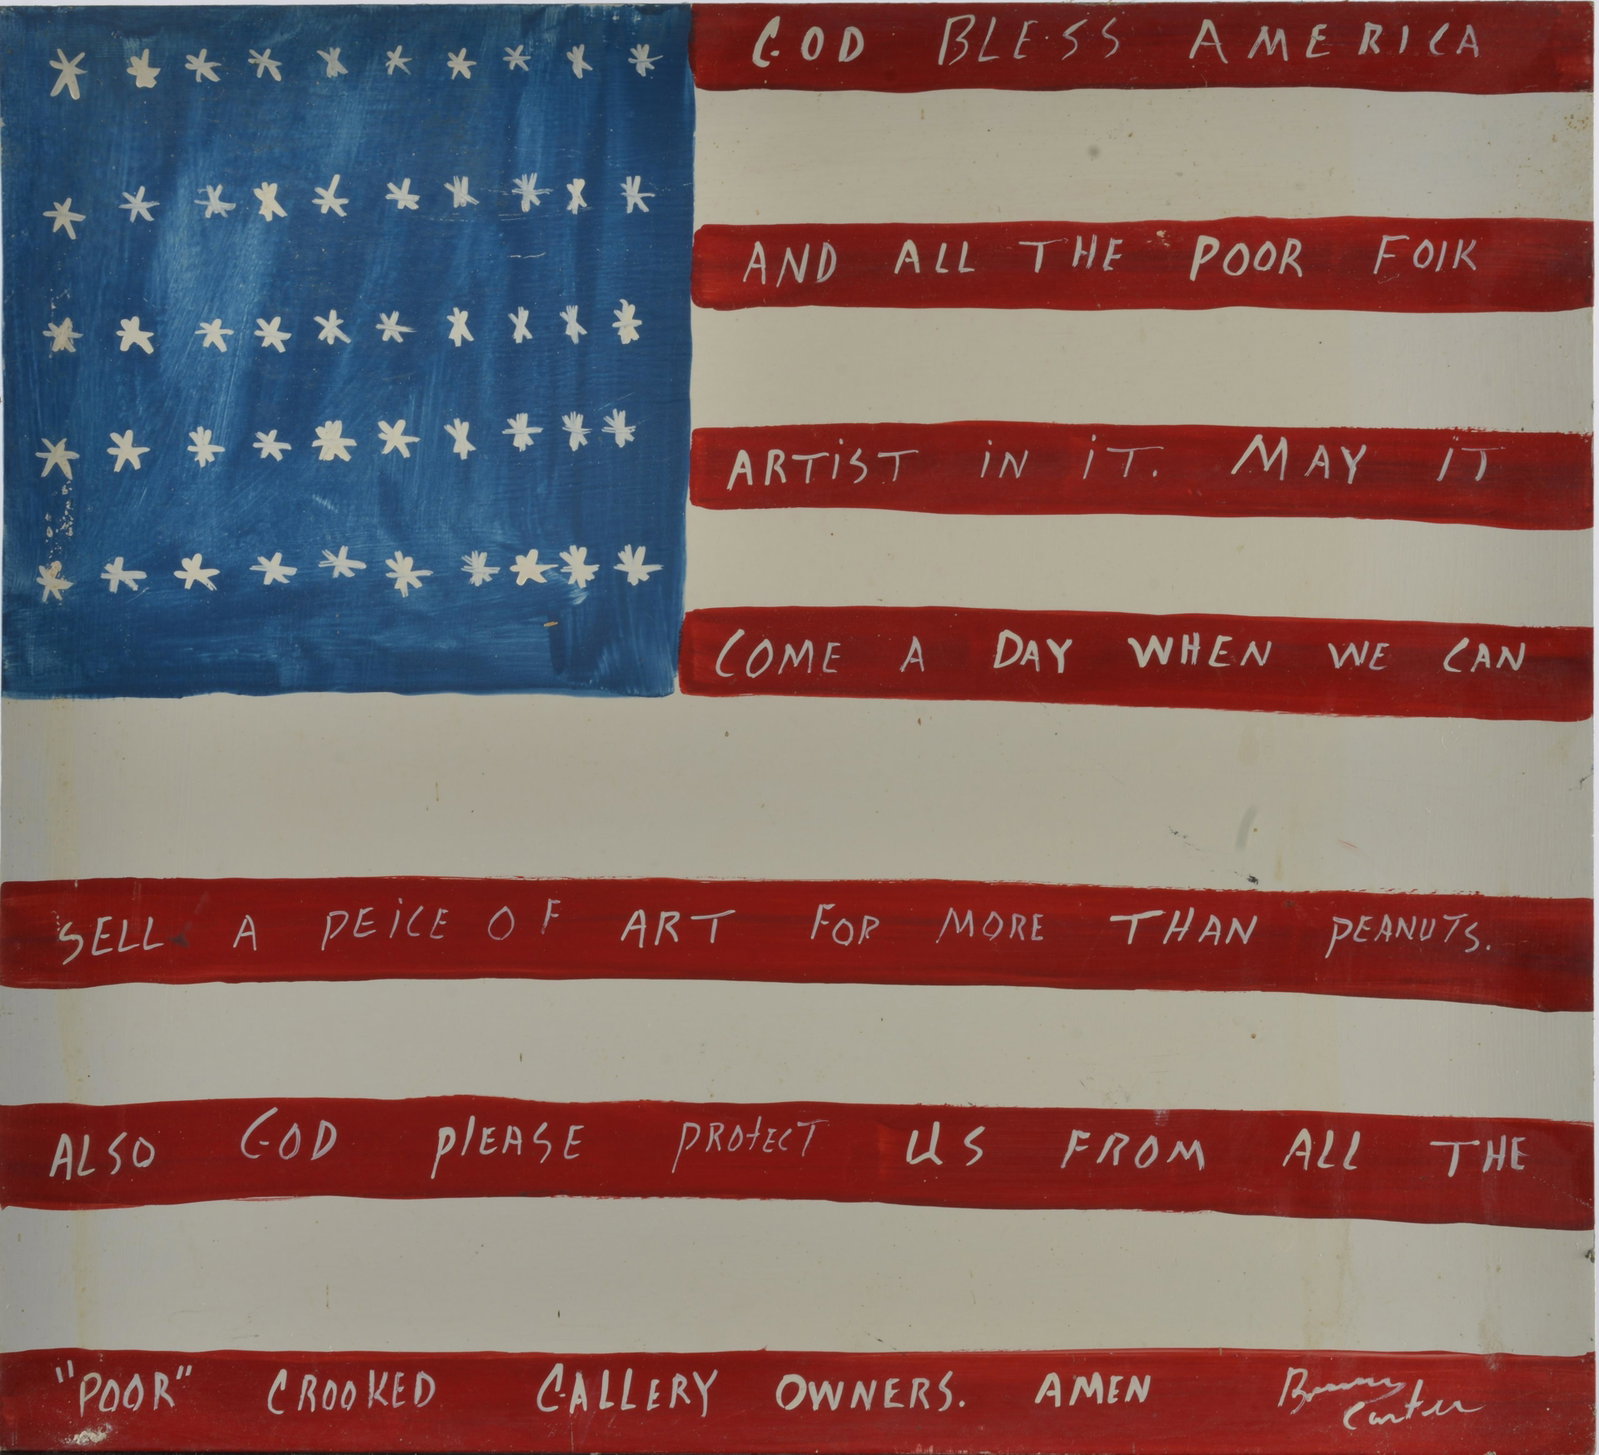 GOD BLESS AMERICA
AND ALL THE POOR FOlK
ARTiST iN iT. MAY iT
COME A DAY WHEN WE CAN
SELL A PEiCE OF ART FOR MORE THAN PEANUTS.
ALSO GOD PlEASE PROtECT US FROM ALL THE
"POOR" CROOKED GALLERY OWNERS. AMEN Benny Carter